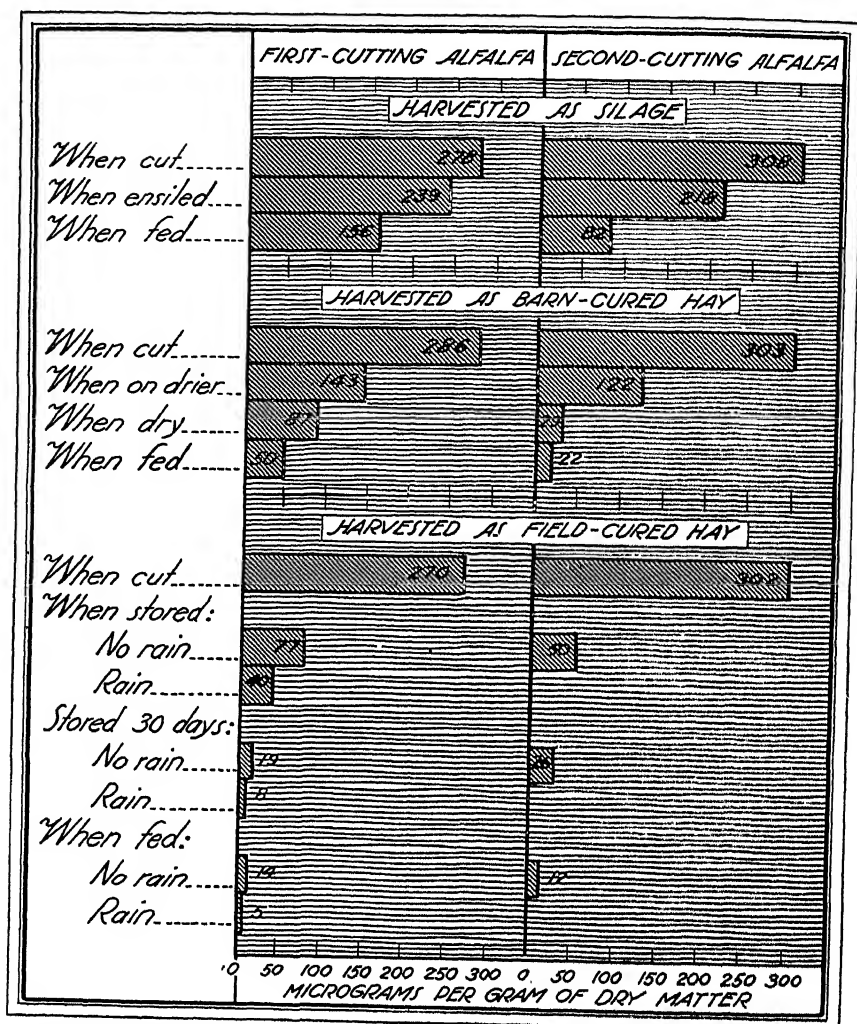 FIRST-CUTTING ALFALFA SECOND-CUTTING ALFALFA
HARVESTED AS SILAGE
When cut 308
When ensiled 239 218
When fed 156 82
HARVESTED AS BARN-CURED HAY
When cut 286 303
When on drier 143 122
When dry 87 29
When fed 50 22
HARVESTED AS FIELD-CURED HAY
When cut 270 302
When stored:
No rain 77 50
Rain 40
Stored 30 days:
No rain 19
Rain 8
When fed:
No rain 14
Rain 5
0 50 100 150 200 250 300 0 50 100 150 200 250 300
MICROGRAMS PER GRAM OF DRY MATTER